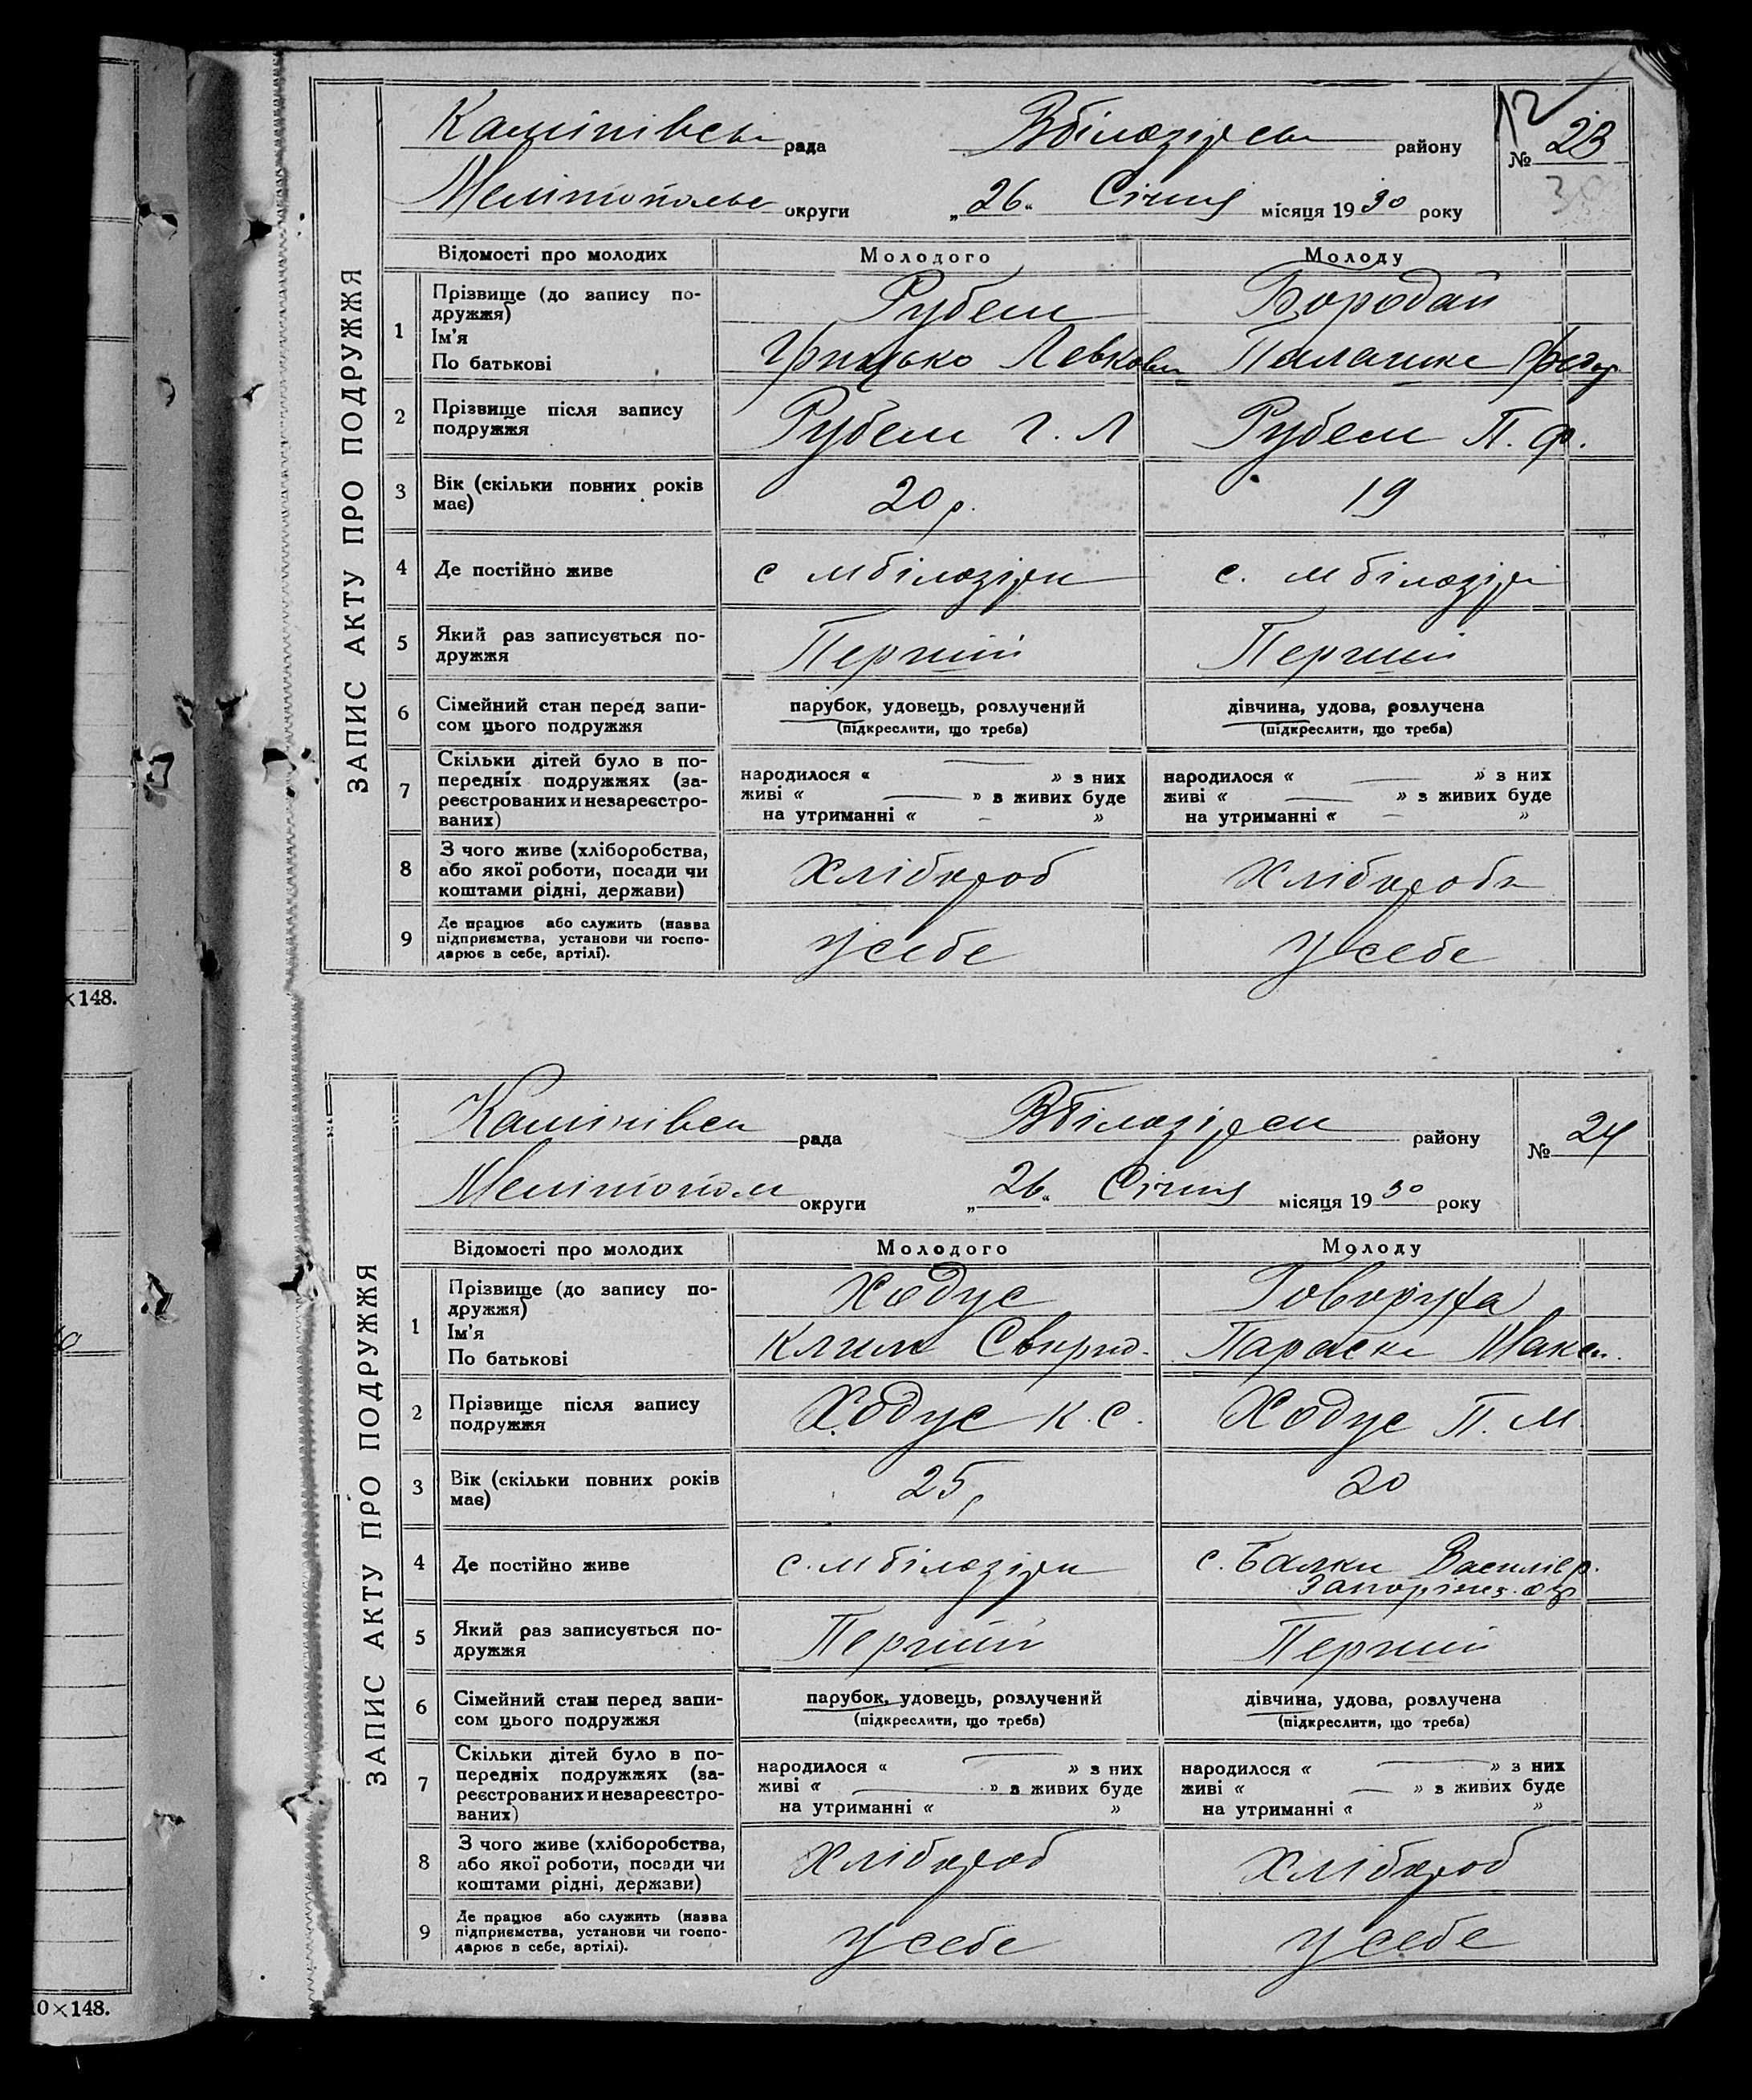 148.
10×148.
12
ЗАПИС АКТУ ПРО ПОДРУЖЖЯ
Камінівськ рада Вбілозірськ району № 23
Мелітопольс округи „26“ Січня місяця 1930 року
Відомості про молодих Молодого Молоду
1 Прізвище (до запису по-
дружжя) Рубель Бородай
Ім'я
По батькові Грицько Левкови Палашка Федор
2 Прізвище після запису
подружжя Рубель Г. Л Рубель П. Ф.
3 Вік (скільки повних років
має) 20 р. 19
4 Де постійно живе с мбілозірки с. м білозірк
5 Який раз записується по-
дружжя Перший Перший
6 Сімейний стан перед запи-
сом цього подружжя парубок, удовець, розлучений дівчина, удова, розлучена
(підкреслити, що треба) (підкреслити, що треба)
7 Скільки дітей було в по-
передніх подружжях (за-
реєстрованих и незареєстро-
ваних)
народилося « — » з них народилося « — » з них
живі « — » з живих буде живі « — » з живих буде
на утриманні « – » на утриманні « – »
8 З чого живе (хліборобства,
або якої роботи, посади чи
коштами рідні, держави) Хлібороб Хлібороба
9 Де працює або служить (назва
підприємства, установи чи госпо-
дарює в себе, артілі). У себе У себе
ЗАПИС АКТУ ПРО ПОДРУЖЖЯ
Камінівськ рада Вбілозірськ району № 24
Мелітопол округи „26“ Січня місяця 1930 року
Відомості про молодих Молодого Молоду
1 Прізвище (до запису по-
дружжя) Ходус Говоруха
Ім'я
По батькові Клим Свирид. Параска Макс.
2 Прізвище після запису
подружжя Ходус К. С. Ходус П. М
3 Вік (скільки повних років
має) 25 20
4 Де постійно живе с. мбілозірки с. Балки Василів р.
Запоріжз. окр
5 Який раз записується по-
дружжя Перший Перший
6 Сімейний стан перед запи-
сом цього подружжя парубок, удовець, розлучений дівчина, удова, розлучена
(підкреслити, що треба) (підкреслити, що треба)
7 Скільки дітей було в по-
передніх подружжях (за-
реєстрованих и незареєстро-
ваних)
народилося « — » з них народилося « — » з них
живі « — » з живих буде живі « — » з живих буде
на утриманні « » на утриманні « »
8 З чого живе (хліборобства,
або якої роботи, посади чи
коштами рідні, держави) Хлібороб Хлібороб
9 Де працює або служить (назва
підприємства, установи чи госпо-
дарює в себе, артілі). У себе У себе